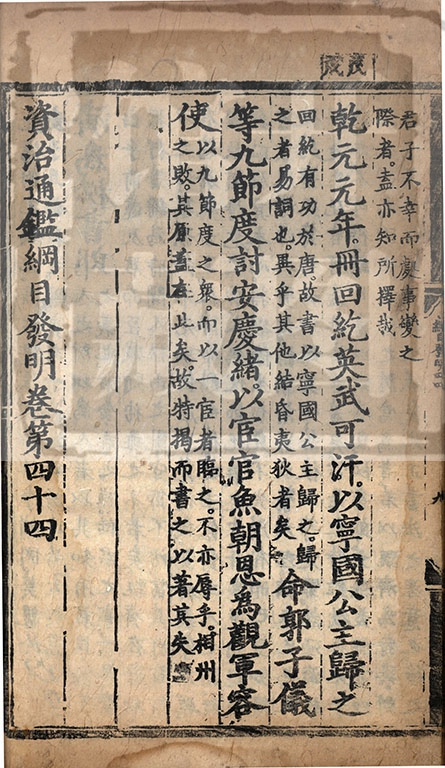 君子不幸而處事變之
際者。盍亦知所擇哉
乾元元年。冊回紇英武可汗。以寧國公主歸之
回紇有功於唐。故書以寧國公主歸之。歸
之者易詞也。異乎其他結昏夷狄者矣。
命郭子儀
等九節度討安慶緒。以宦官魚朝恩為觀軍容
使
以九節度之衆。而以一宦者臨之。不亦辱乎。相州
之敗。其原盖在此矣。故特揭而書之。以著其失
資治通鑑綱目發明卷第四十四